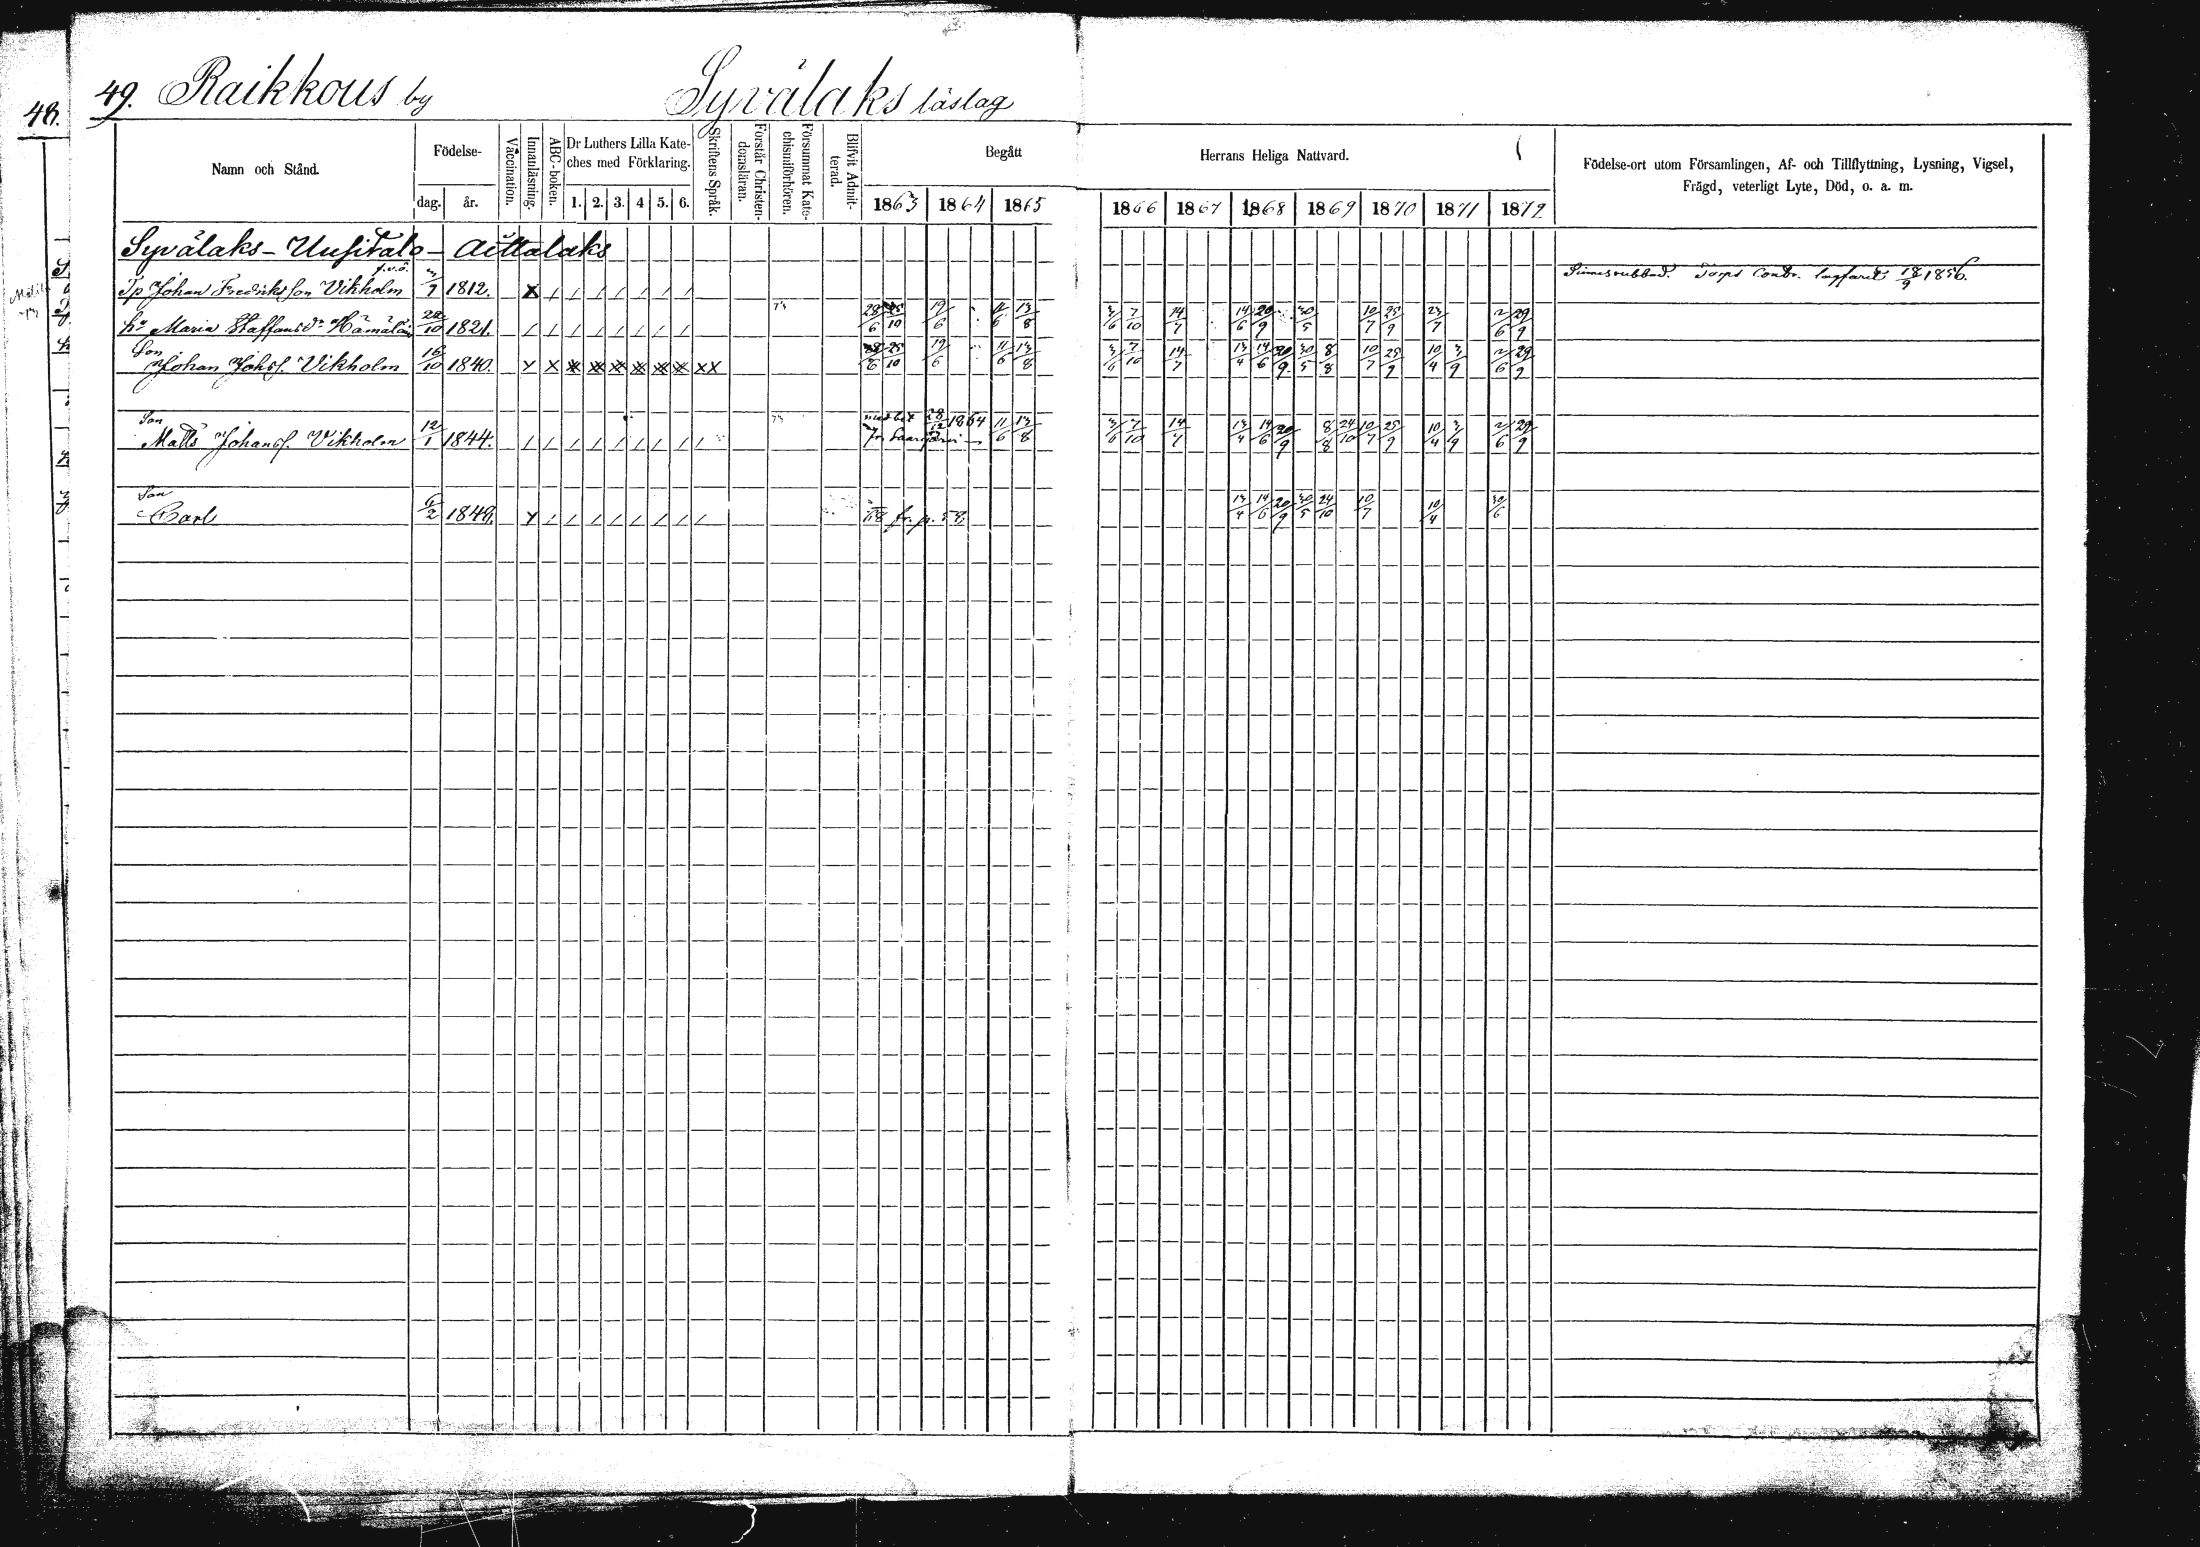 48.
49. Raikkous by Syvälaks läslag
Namn och Stånd.
Födelse-
dag. år.
Vaccination.
Innanläsning.
ABC-boken.
Dr Luthers Lilla Kate-
ches med Förklaring.
1. 2. 3. 4 5. 6.
Skriftens Språk.
Förstår Christen-
domsläran.
Försummat Kate-
chismiförhören.
Blifvit Admit-
terad.
Begått Herrans Heliga Nattvard.
1863 1864 1865 1866 1867 1868 1869 1870 1871 1872
Födelse-ort utom Församlingen, Af- och Tillflyttning, Lysning, Vigsel,
Frägd, veterligt Lyte, Död, o. a. m.
Syvälaks - Uusitalo - Aittalaks
Tp Johan Fredriksson Vikholm 1812. X / / / / / / / Torps contr. 18/9 1856.
Maria Staffansdr Hämäläin 1821. / / / / / / / / 19/6 11/6 13/8 3/6 7/10 14/7 14/6 20/9 30/5 10/7 25/9 23/7 2/6 29/9
Son
Johan Johsf. Vikholm 16/10 1840. 19/6 11/6 13/8 3/6 7/10 14/7 13/4 14/6 20/9 30/5 8/8 10/7 25/9 10/4 3/9 2/6 29/9
Son
Matts Johansf. Vikholm 12/1 1844. / / / / / / / / / med bet 28/12 1864 11/6 13/8 3/6 7/10 14/7 13/4 14/6 20/9 8/8 24/10 10/7 25/9 10/4 3/9 2/6 29/9
fr. Saarijärvi
Son
Carl 6/2 1848. fr. p. 13/4 14/6 20/9 30/5 24/10 10/7 10/4 30/6